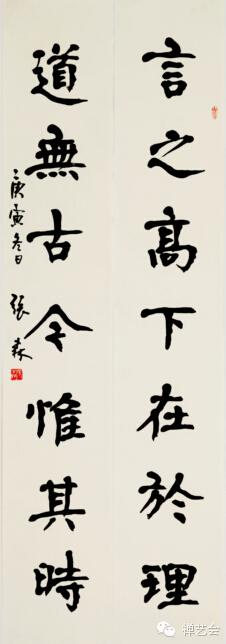 言之高下在於理
道無古今惟其時
庚寅冬日 張森
禅艺会